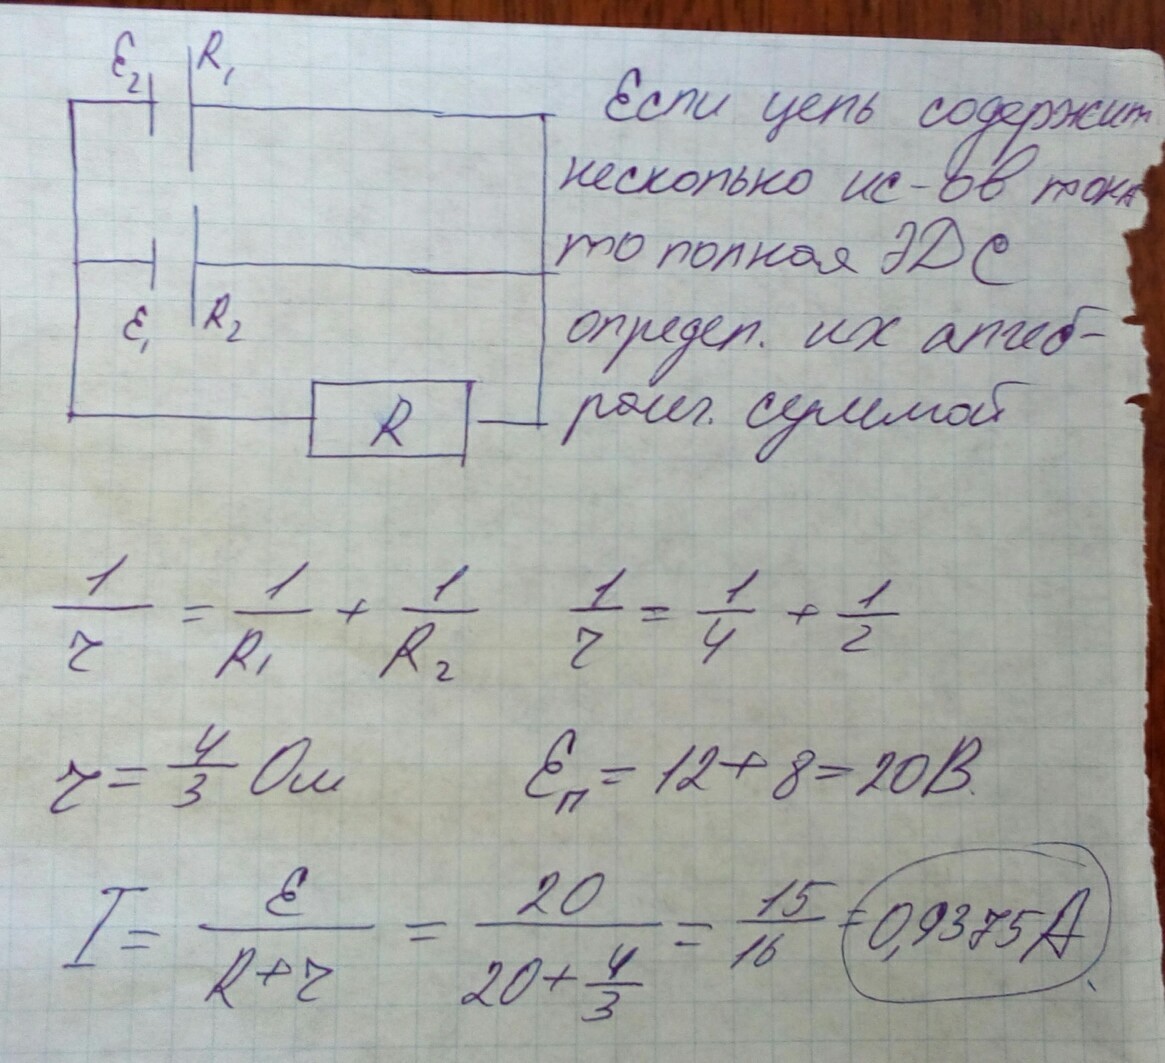 ℰ₂ R₁
Если цепь содержит
несколько ис-ов тока
то полная ЭДС
ℰ₁ R₂
определ. их алгеб-
раич. суммой
R
1/r = 1/R₁ + 1/R₂ 1/r = 1/4 + 1/2
r = 4/3 Ом ℰп = 12 + 8 = 20 В.
I = ℰ/(R+r) = 20/(20+4/3) = 15/16 = 0,9375 А